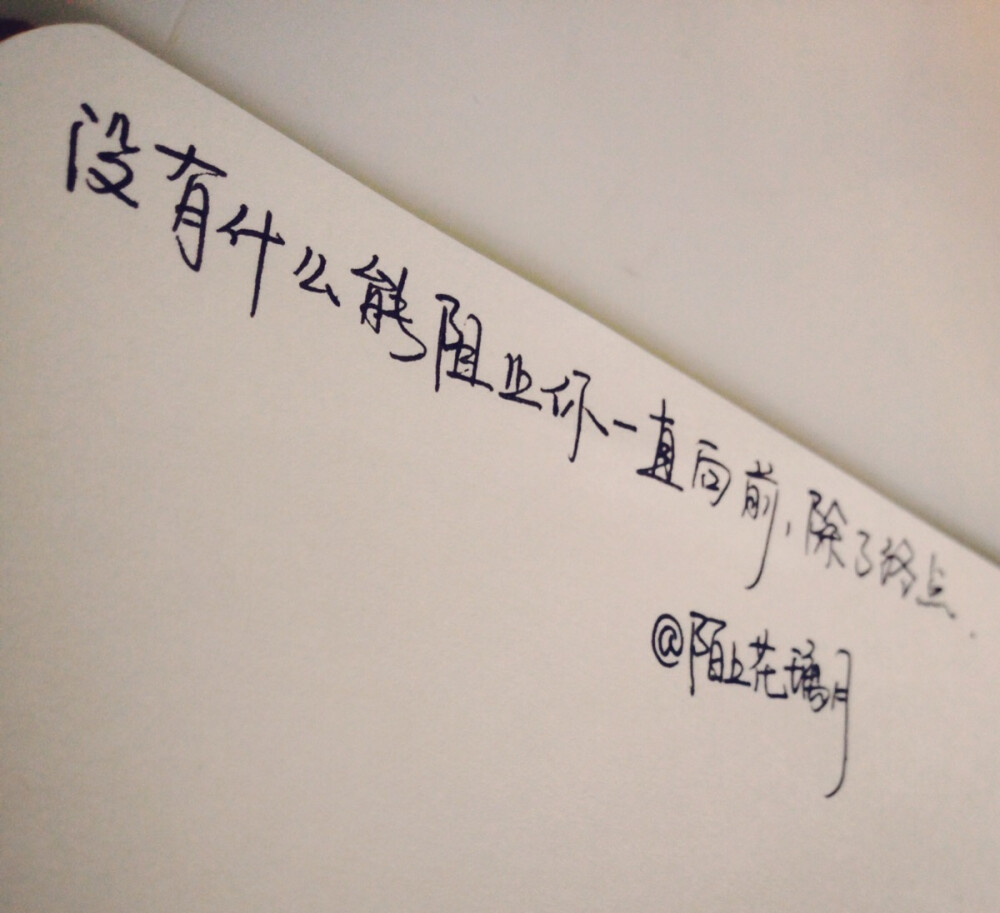 没有什么能阻止你一直向前,除了终点.
@陌上花璃月